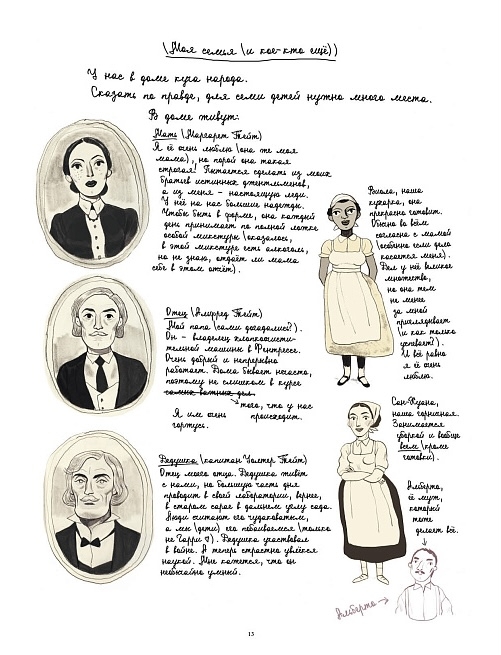 (Моя семья (и кое-кто ещё))
У нас в доме куча народа.
Сказать по правде, для семи детей нужно много места.
В доме живут:
Мать (Маргарет Тейт)
Я её очень люблю (она же моя
мама), но порой она такая
строгая! Пытается сделать из моих
братьев истинных джентльменов,
а из меня – настоящую леди.
У неё на нас большие надежды.
Чтобы быть в форме, она каждый
день принимает по полной ложке
особой микстуры (оказалось,
в этой микстуре есть алкоголь,
но не знаю, отдаёт ли мама
себе в этом отчёт).
Отец (Альфред Тейт)
Мой папа (сами догадались?).
Он – владелец хлопкоочисти-
тельной машины в Фентрессе.
Очень добрый и непрерывно
работает. Дома бывает нечасто,
поэтому не слишком в курсе
самых важных дел
того, что у нас
происходит.
Я им очень
горжусь.
Дедушка (капитан Уолтер Тейт)
Отец моего отца. Дедушка живёт
с нами, но большую часть дня
проводит в своей лаборатории, вернее,
в старом сарае в дальнем углу сада.
Люди считают его чудаковатым,
а мы (дети) его побаиваемся (только
не Гарри). Дедушка участвовал
в войне. А теперь страстно увлёкся
наукой. Мне кажется, что он
необычайно умный.
Виола, наша
кухарка, она
прекрасно готовит.
Обычно во всём
согласна с мамой
(особенно если дело
касается меня).
Дел у неё великое
множество,
но она тем
не менее
за мной
приглядывает
(и как только
успевает?).
И всё равно
я её очень
люблю.
Сан-Хуана,
наша горничная.
Занимается
уборкой и вообще
всем (кроме
готовки).
Альберто,
её муж,
который
тоже
делает всё.
Альберто
13